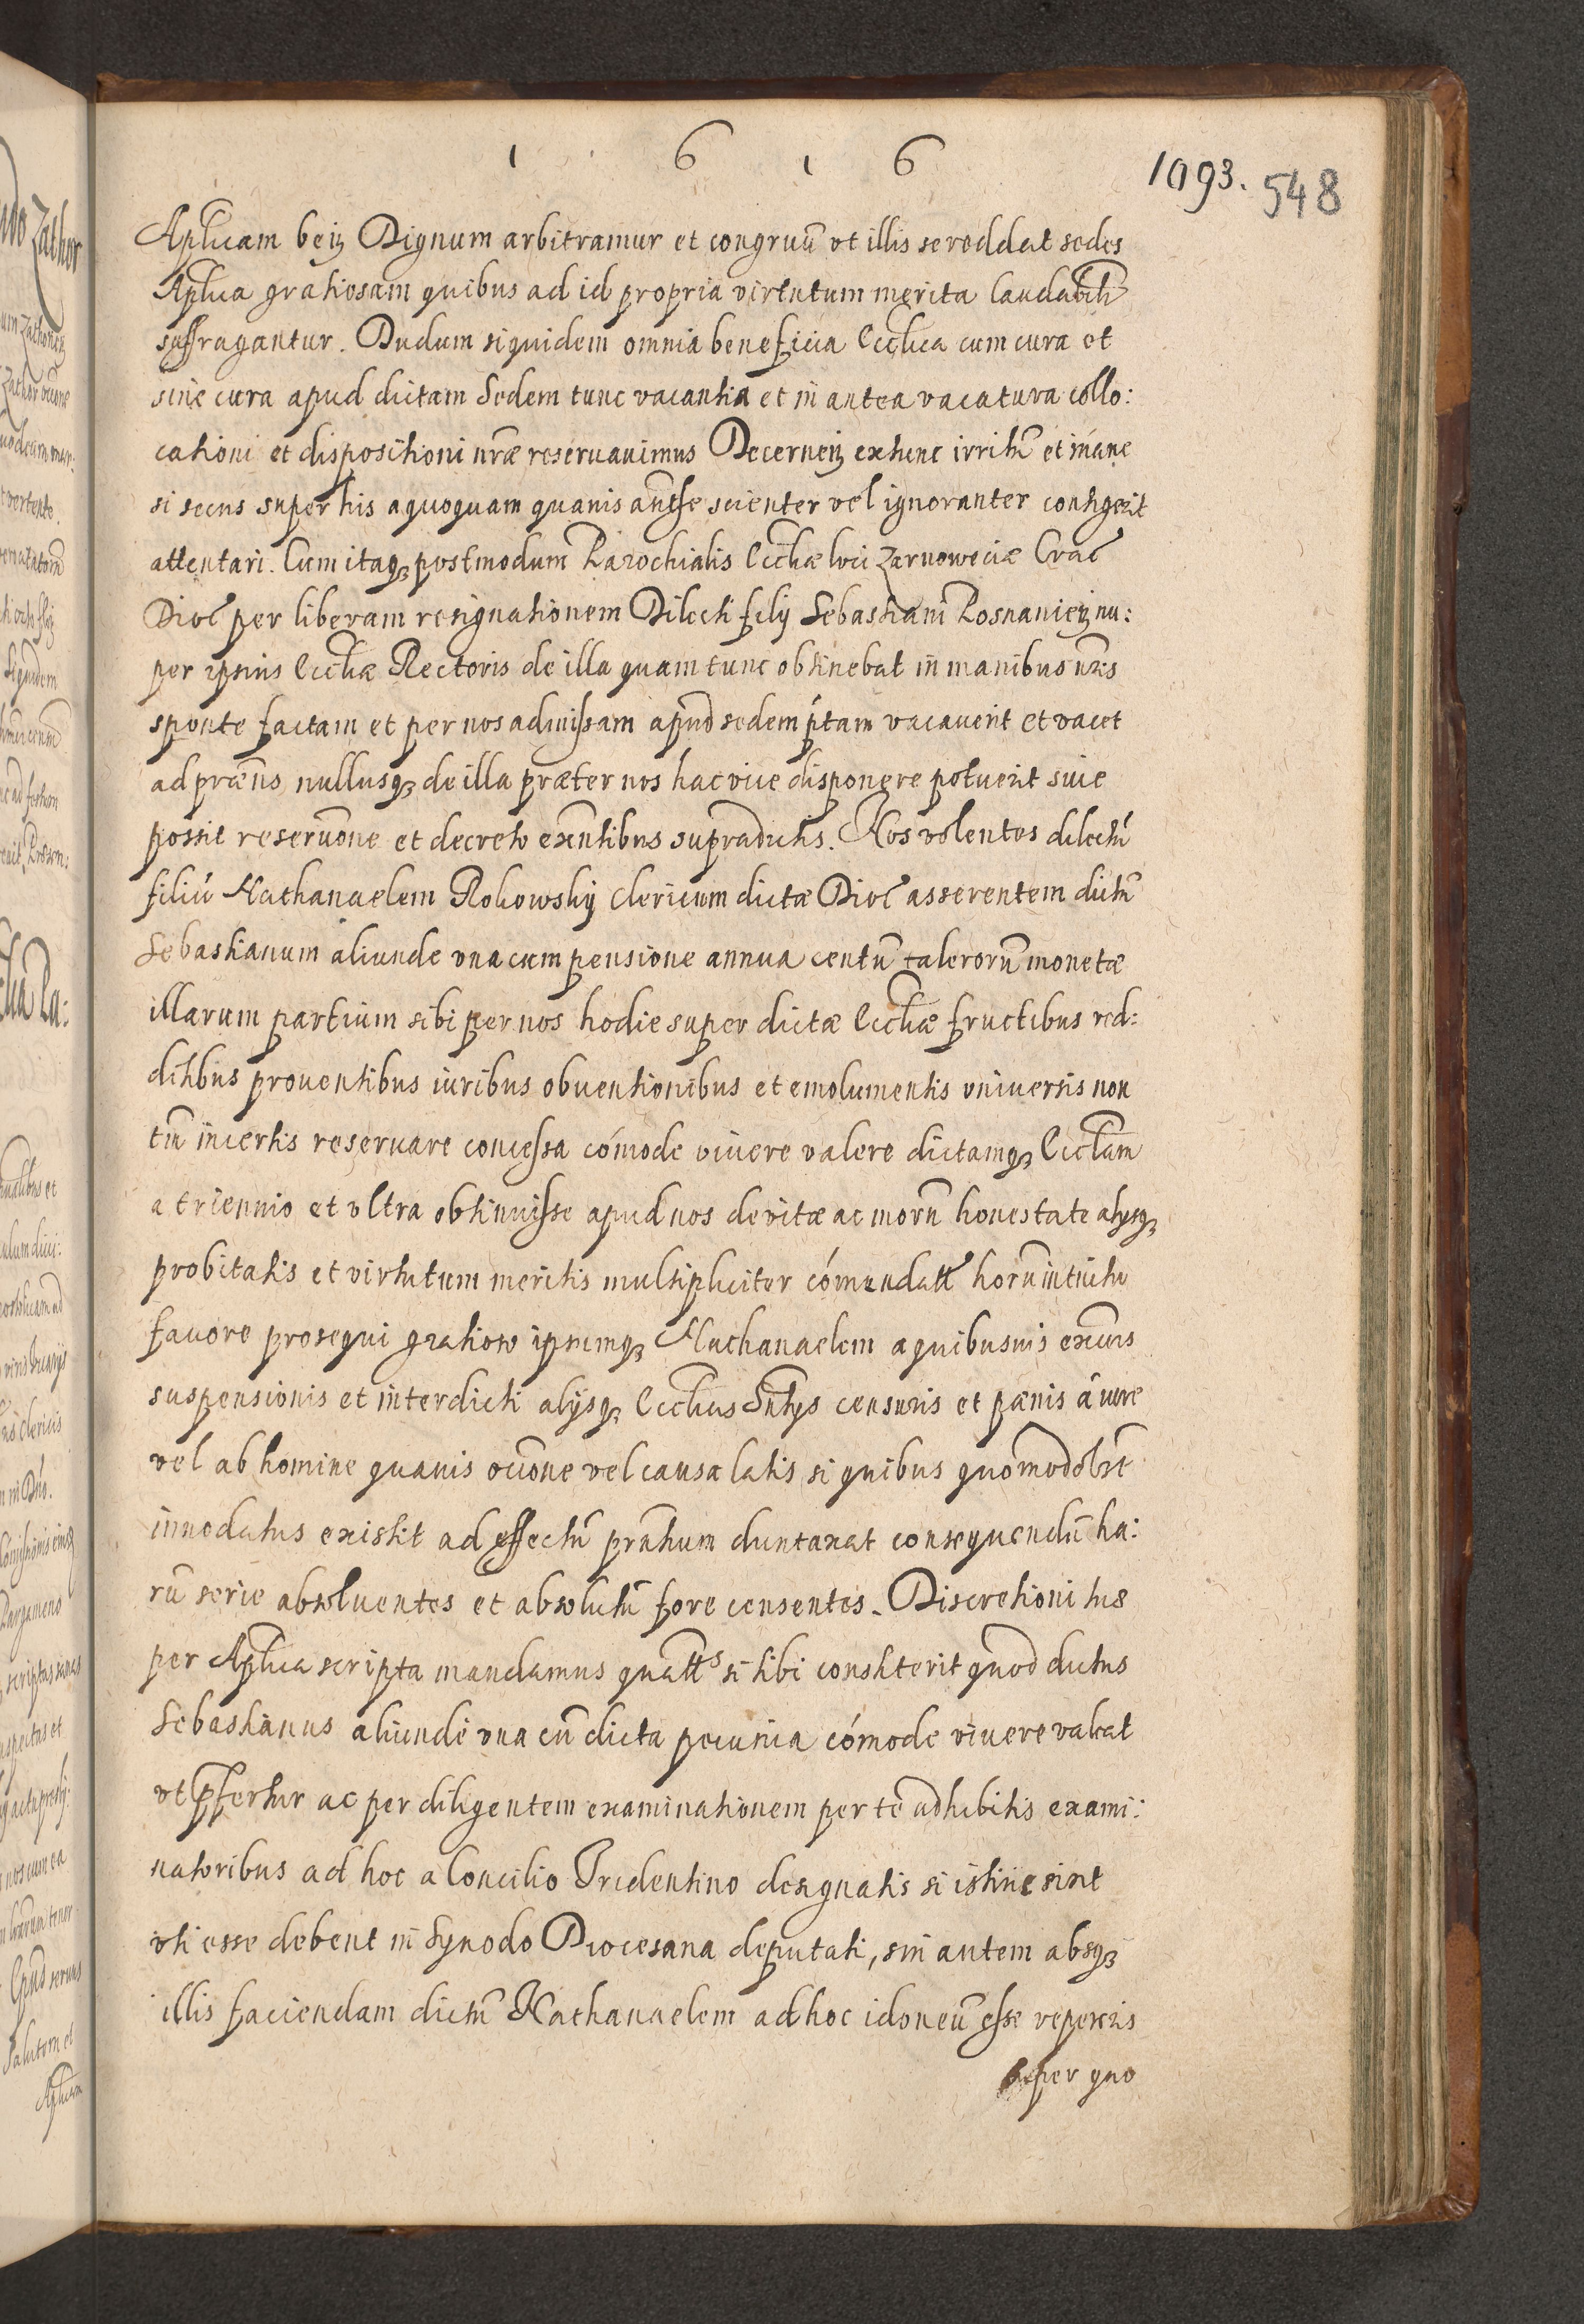 1 6 1 6
1093. 548
Aplicam beñ Dignum arbitramur et congruũ vt illis se reddat sedes
Aplica gratiosam quibus ad id propria virtutum merita laudabilr
suffragantur. Dudum siquidem omnia beneficia Ecclica cum cura et
sine cura apud dictam Sedem tunc vacantia et in antea vacatura collo:
cationi et dispositioni nrãe reseruauimus Decerneñ extunc irritũ et inane
si secus super his a quoquam quauis auctte scienter vel ignoranter contigerit
attentari. Cum itaq₃ postmodum Parochialis Eccliæ loci Zarnoweciæ Crac
Dioc per liberam resignationem Dilecti filij Sebastiani Posnanieñ nu:
per ipsius Eccliæ Rectoris de illa quam tunc obtinebat in manibus nris
sponte factam et per nos admissam apud sedem ptam vacauerit et vacet
ad præns nullusq₃ de illa præter nos hac vice disponere potuerit siue
possit reseruõne et decreto exñtibus supradictis. Nos volentes dilectũ
filiũ Nathanaelem Rokowskij Clericum dictæ Dioc asserentem dictũ
Sebastianum aliunde vna cum pensione annua centũ talerorũ monetæ
illarum partium sibi per nos hodie super dictæ Eccliæ fructibus red:
ditibus prouentibus iuribus obuentionibus et emolumentis vniuersis non
tm̃ incertis reseruare concessa cómode viuere valere dictamq₃ Eccliam
a triennio et vltra obtinuisse apud nos de vitæ ac morũ honestate alysq₃
probitatis et virtutum meritis multipliciter cómendatũ horũ intuitu
fauore prosequi gratioso ipsumq₃ Nathanaelem a quibusuis exc̃uis
suspensionis et interdicti alijsq₃ Ecclicis Sñtys censuris et pænis á iure
vel ab homine quauis occõne vel causa latis si quibus quomodolbt
innodatus existit ad effectũ prñtium duntaxat consequendũ ha:
rũ serie absoluentes et absolutũ fore censentes. Discretioni tuæ
per Aplica scripta mandamus quatts si tibi constiterit quod dictus
Sebastianus aliunde vna cũ dicta pecunia cómode viuere valeat
vt pfertur ac per diligentem examinationem per te adhibitis exami:
natoribus ad hoc a Concilio Tridentino designatis si istinc sint
vti esse debent in Synodo Diocesana deputati, sin autem absq₃
illis faciendam dictũ Nathanaelem ad hoc idoneũ esse repereris
super quo